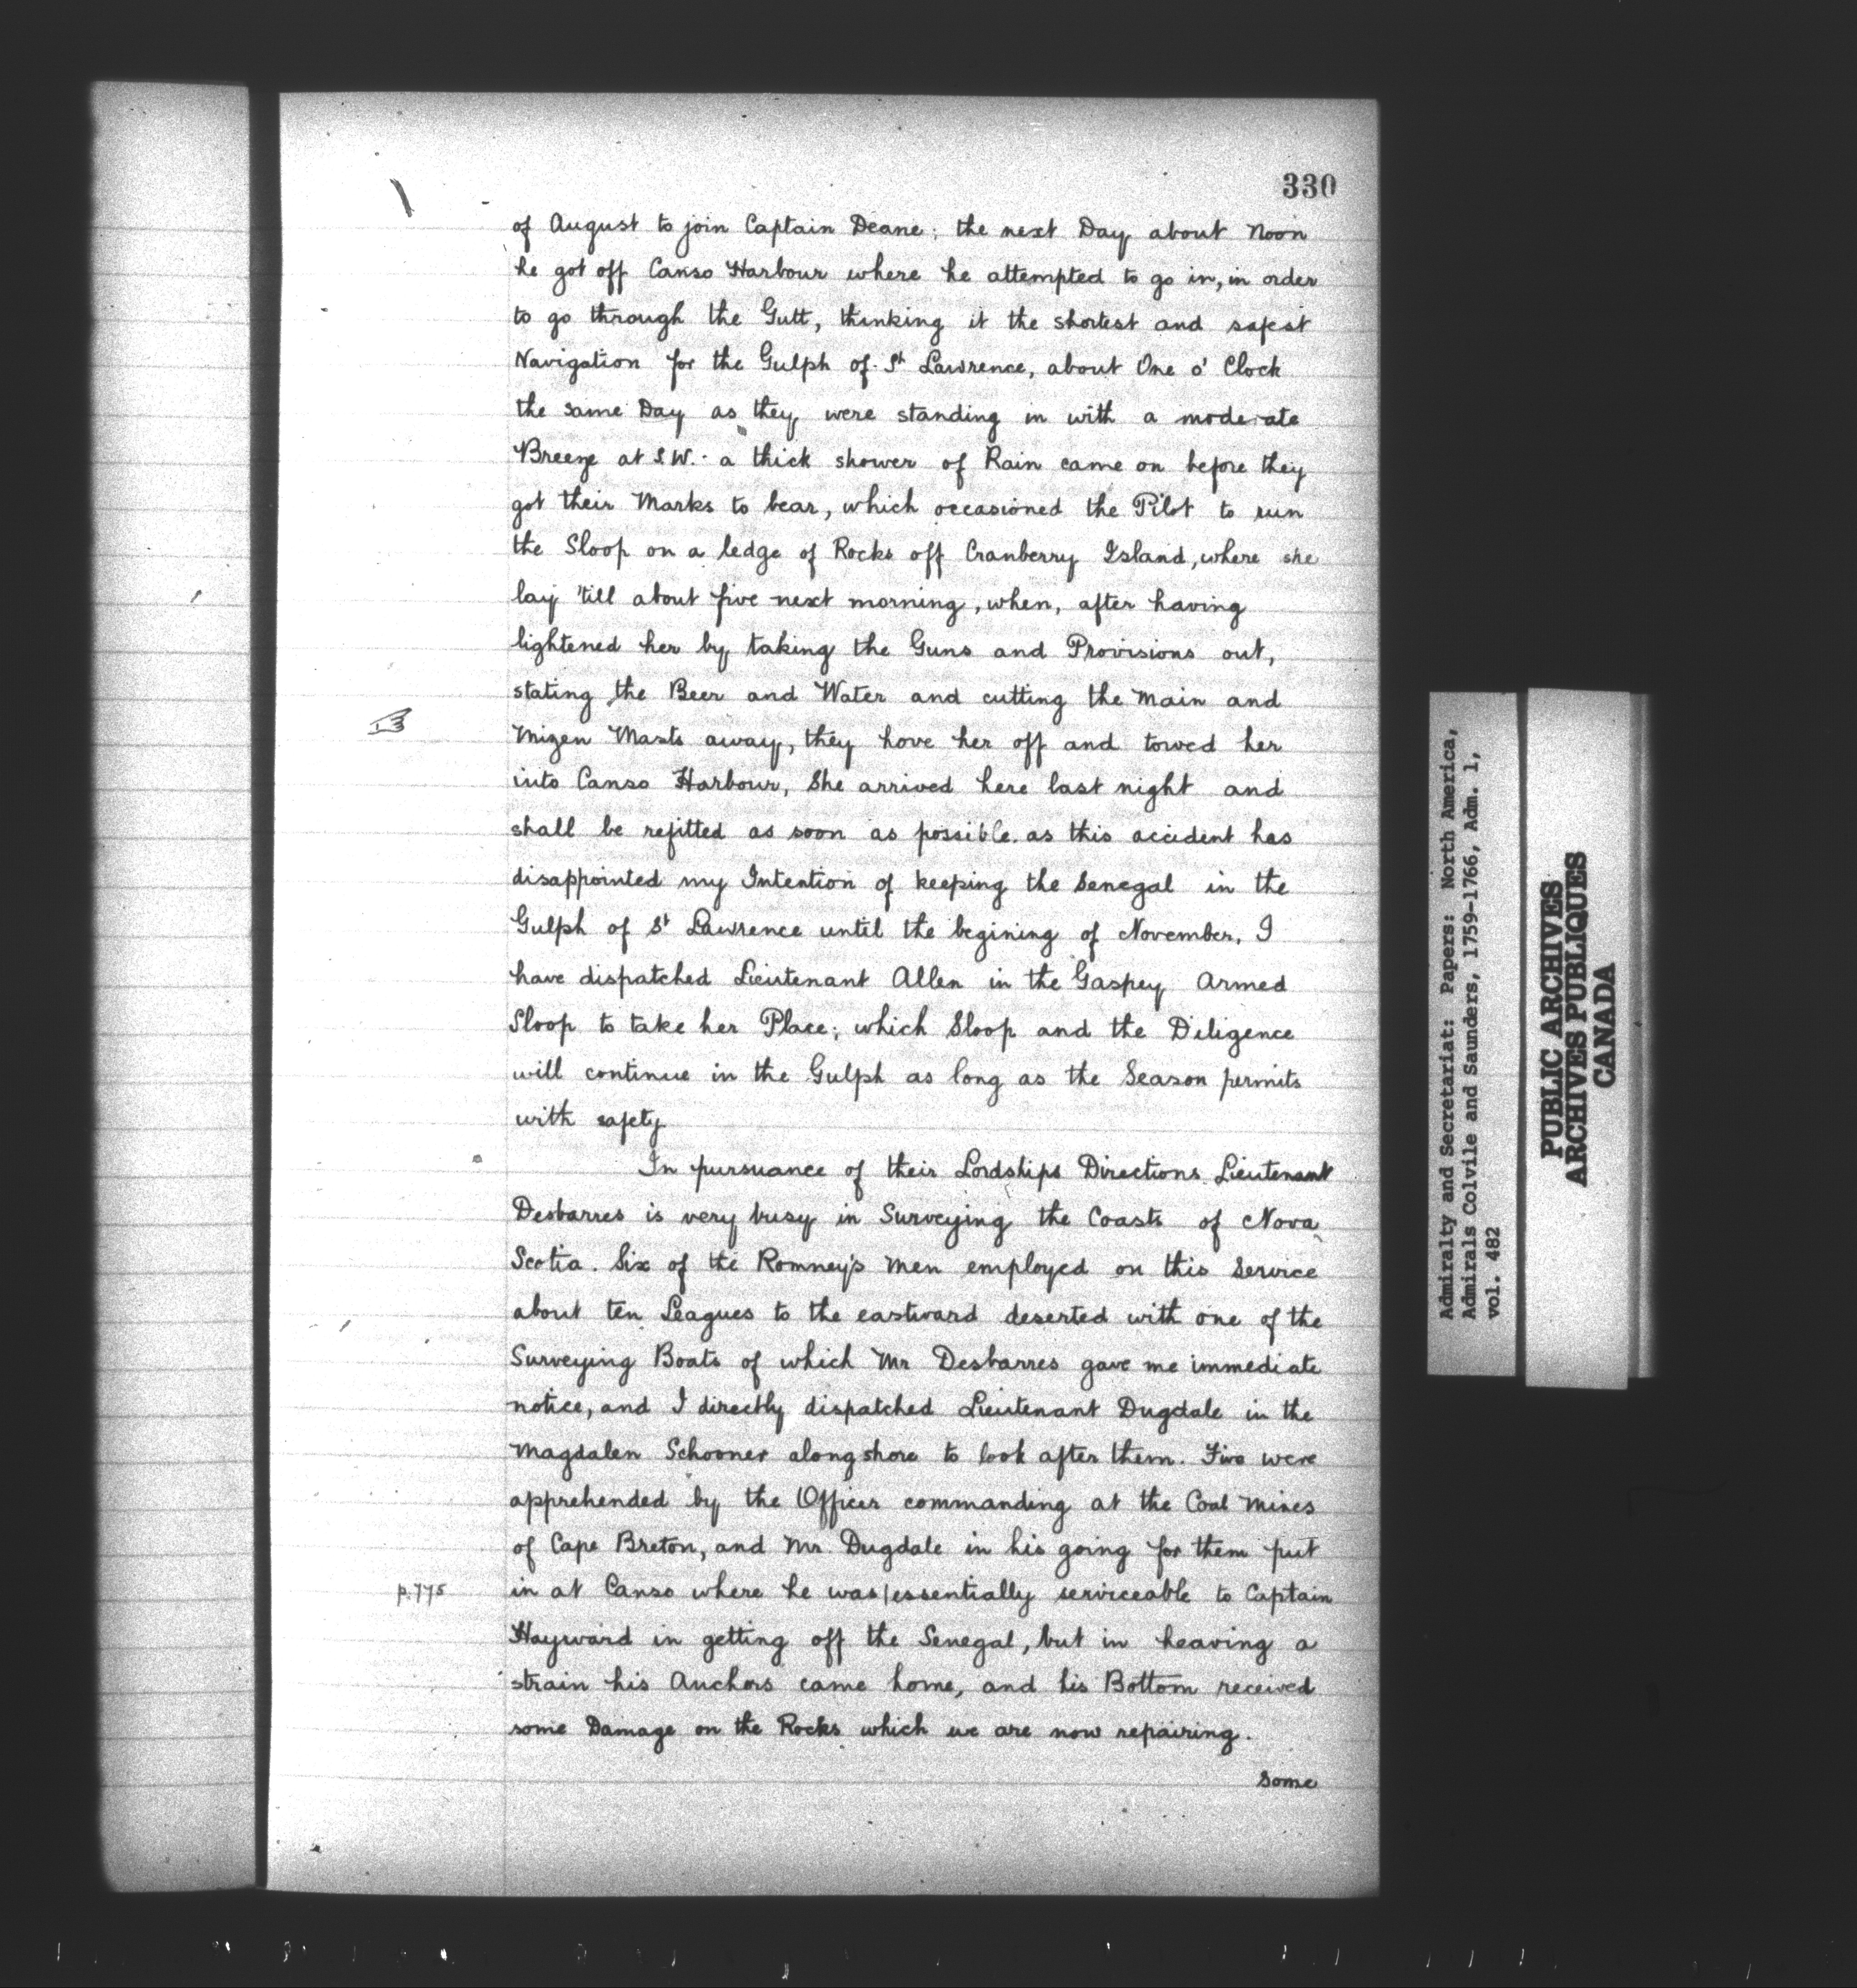 330
of August to join Captain Deane; the next Day about Noon
he got off Canso Harbour where he attempted to go in, in order
to go through the Gutt, thinking it the shortest and safest
Navigation for the Gulph of St Lawrence, about One o' Clock
the same Day as they were standing in with a moderate
Breeze at S.W. a thick shower of Rain came on before they
got their Marks to bear, which occasioned the Pilot to run
the Sloop on a ledge of Rocks off Cranberry Island, where she
lay 'till about five next morning, when, after having
lightened her by taking the Guns and Provisions out,
stating the Beer and Water and cutting the Main and
Mizen Masts away, they hove her off and towed her
into Canso Harbour, She arrived here last night and
shall be refitted as soon as possible. as this accident has
disappointed my Intention of keeping the Senegal in the
Gulph of St Lawrence until the begining of November, I
have dispatched Lieutenant Allen in the Gaspey Armed
Sloop to take her Place; which Sloop and the Diligence
will continue in the Gulph as long as the Season permits
with safety
In pursuance of their Lordships Directions Lieutenant
Desbarres is very busy in Surveying the Coasts of Nova
Scotia. Six of the Romney's Men employed on this Service
about ten Leagues to the eastward deserted with one of the
Surveying Boats of which Mr Desbarres gave me immediate
notice, and I directly dispatched Lieutenant Dugdale in the
Magdalen Schooner along shore to look after them. Five were
apprehended by the Officer commanding at the Coal Mines
of Cape Breton, and Mr. Dugdale in his going for them put
p.775 in at Canso where he was/essentially serviceable to Captain
Hayward in getting off the Senegal, but in heaving a
strain his Anchors came home, and his Bottom received
some Damage on the Rocks which we are now repairing.
Some
Admiralty and Secretariat: Papers: North America,
Admirals Colvile and Saunders, 1759-1766, Adm. 1,
vol. 482
PUBLIC ARCHIVES
ARCHIVES PUBLIQUES
CANADA